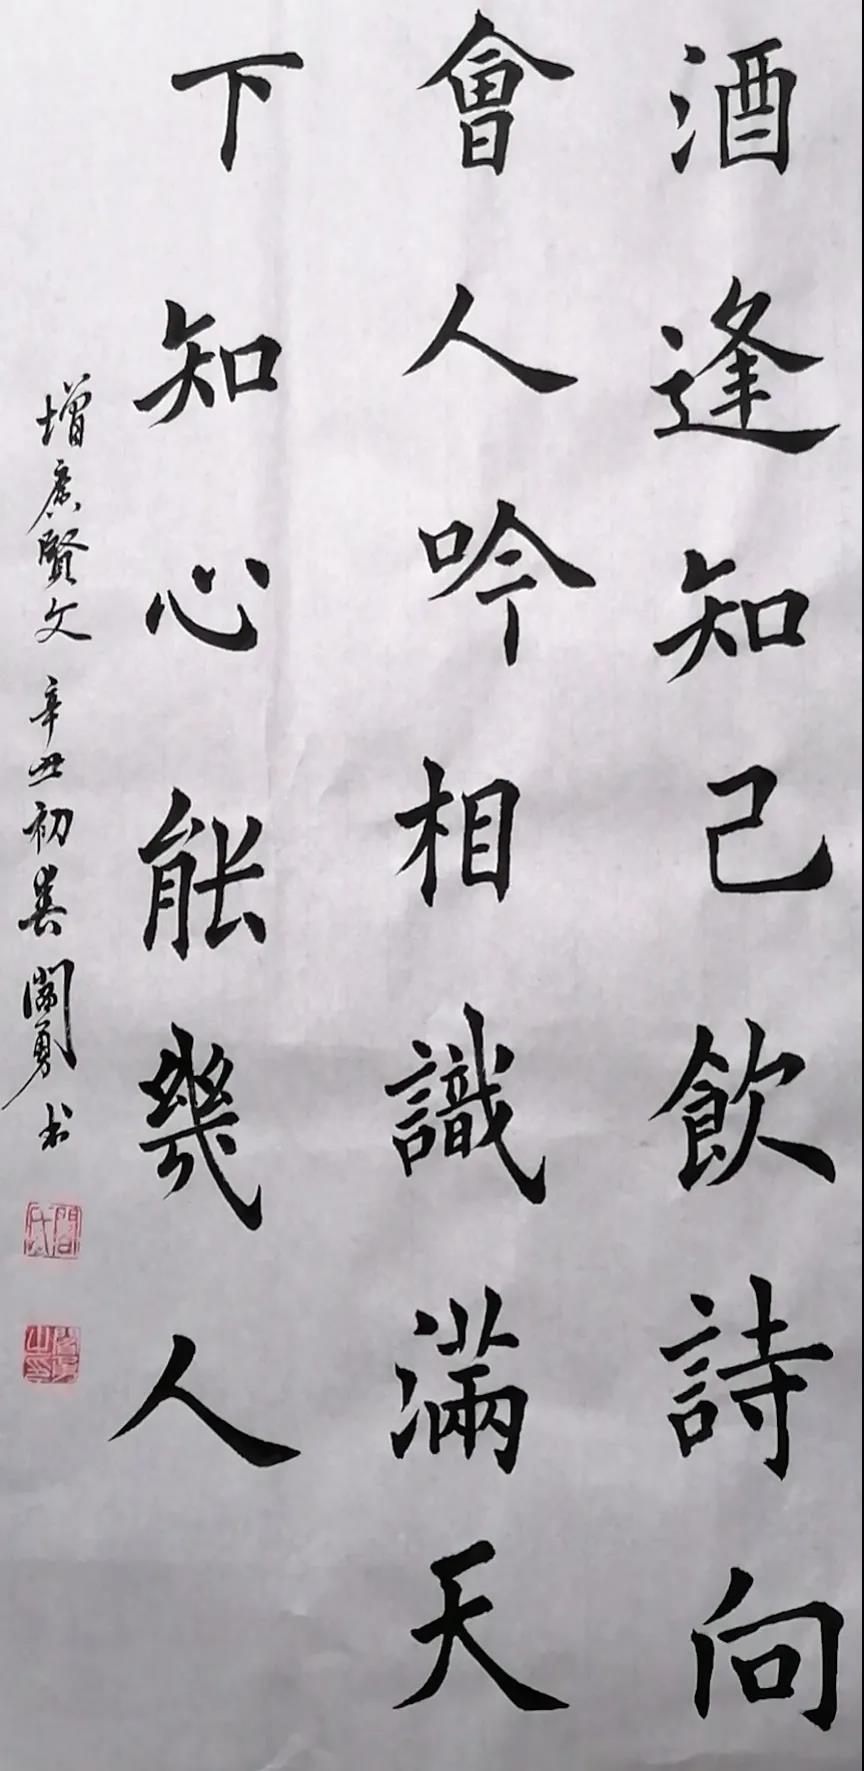 酒逢知己飲詩向
會人吟相識滿天
下知心能幾人
增廣賢文辛丑初春闞勇书